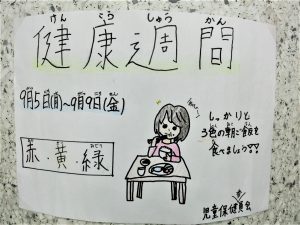 けん こう しゅう かん
健康週間
9月5日(月)~9月9日(金)
赤・黄・緑
しっかりと
3色の朝ご飯を
食べましょう!!
児童保健員会